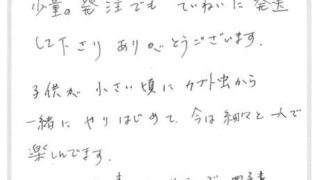 少量の発注でも ていねいに 発送
して下さり ありがとうございます.
子供が 小さい頃に カブト虫から
一緒に やりはじめて、今は細々と一人で
楽しんでます.